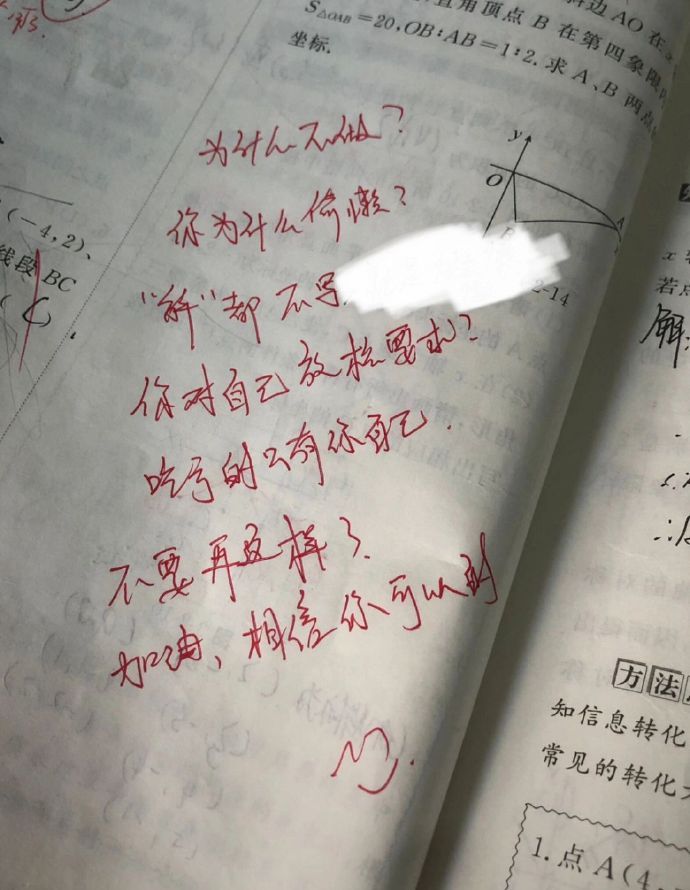 斜边 AO 在 x
直角顶点 B 在第四象限内
S△OAB=20,OB:AB=1:2.求 A、B 两点
坐标.
y
O
A
B
2-14
(-4,2)、
线段 BC
( C ).
为什么不做?
你为什么偷懒?
“解”都不写
你对自己放松要求?
吃亏的只有你自己.
不要再这样了.
加油、相信你可以的
若点
解:
方法
知信息转化
常见的转化
1.点 A(4,